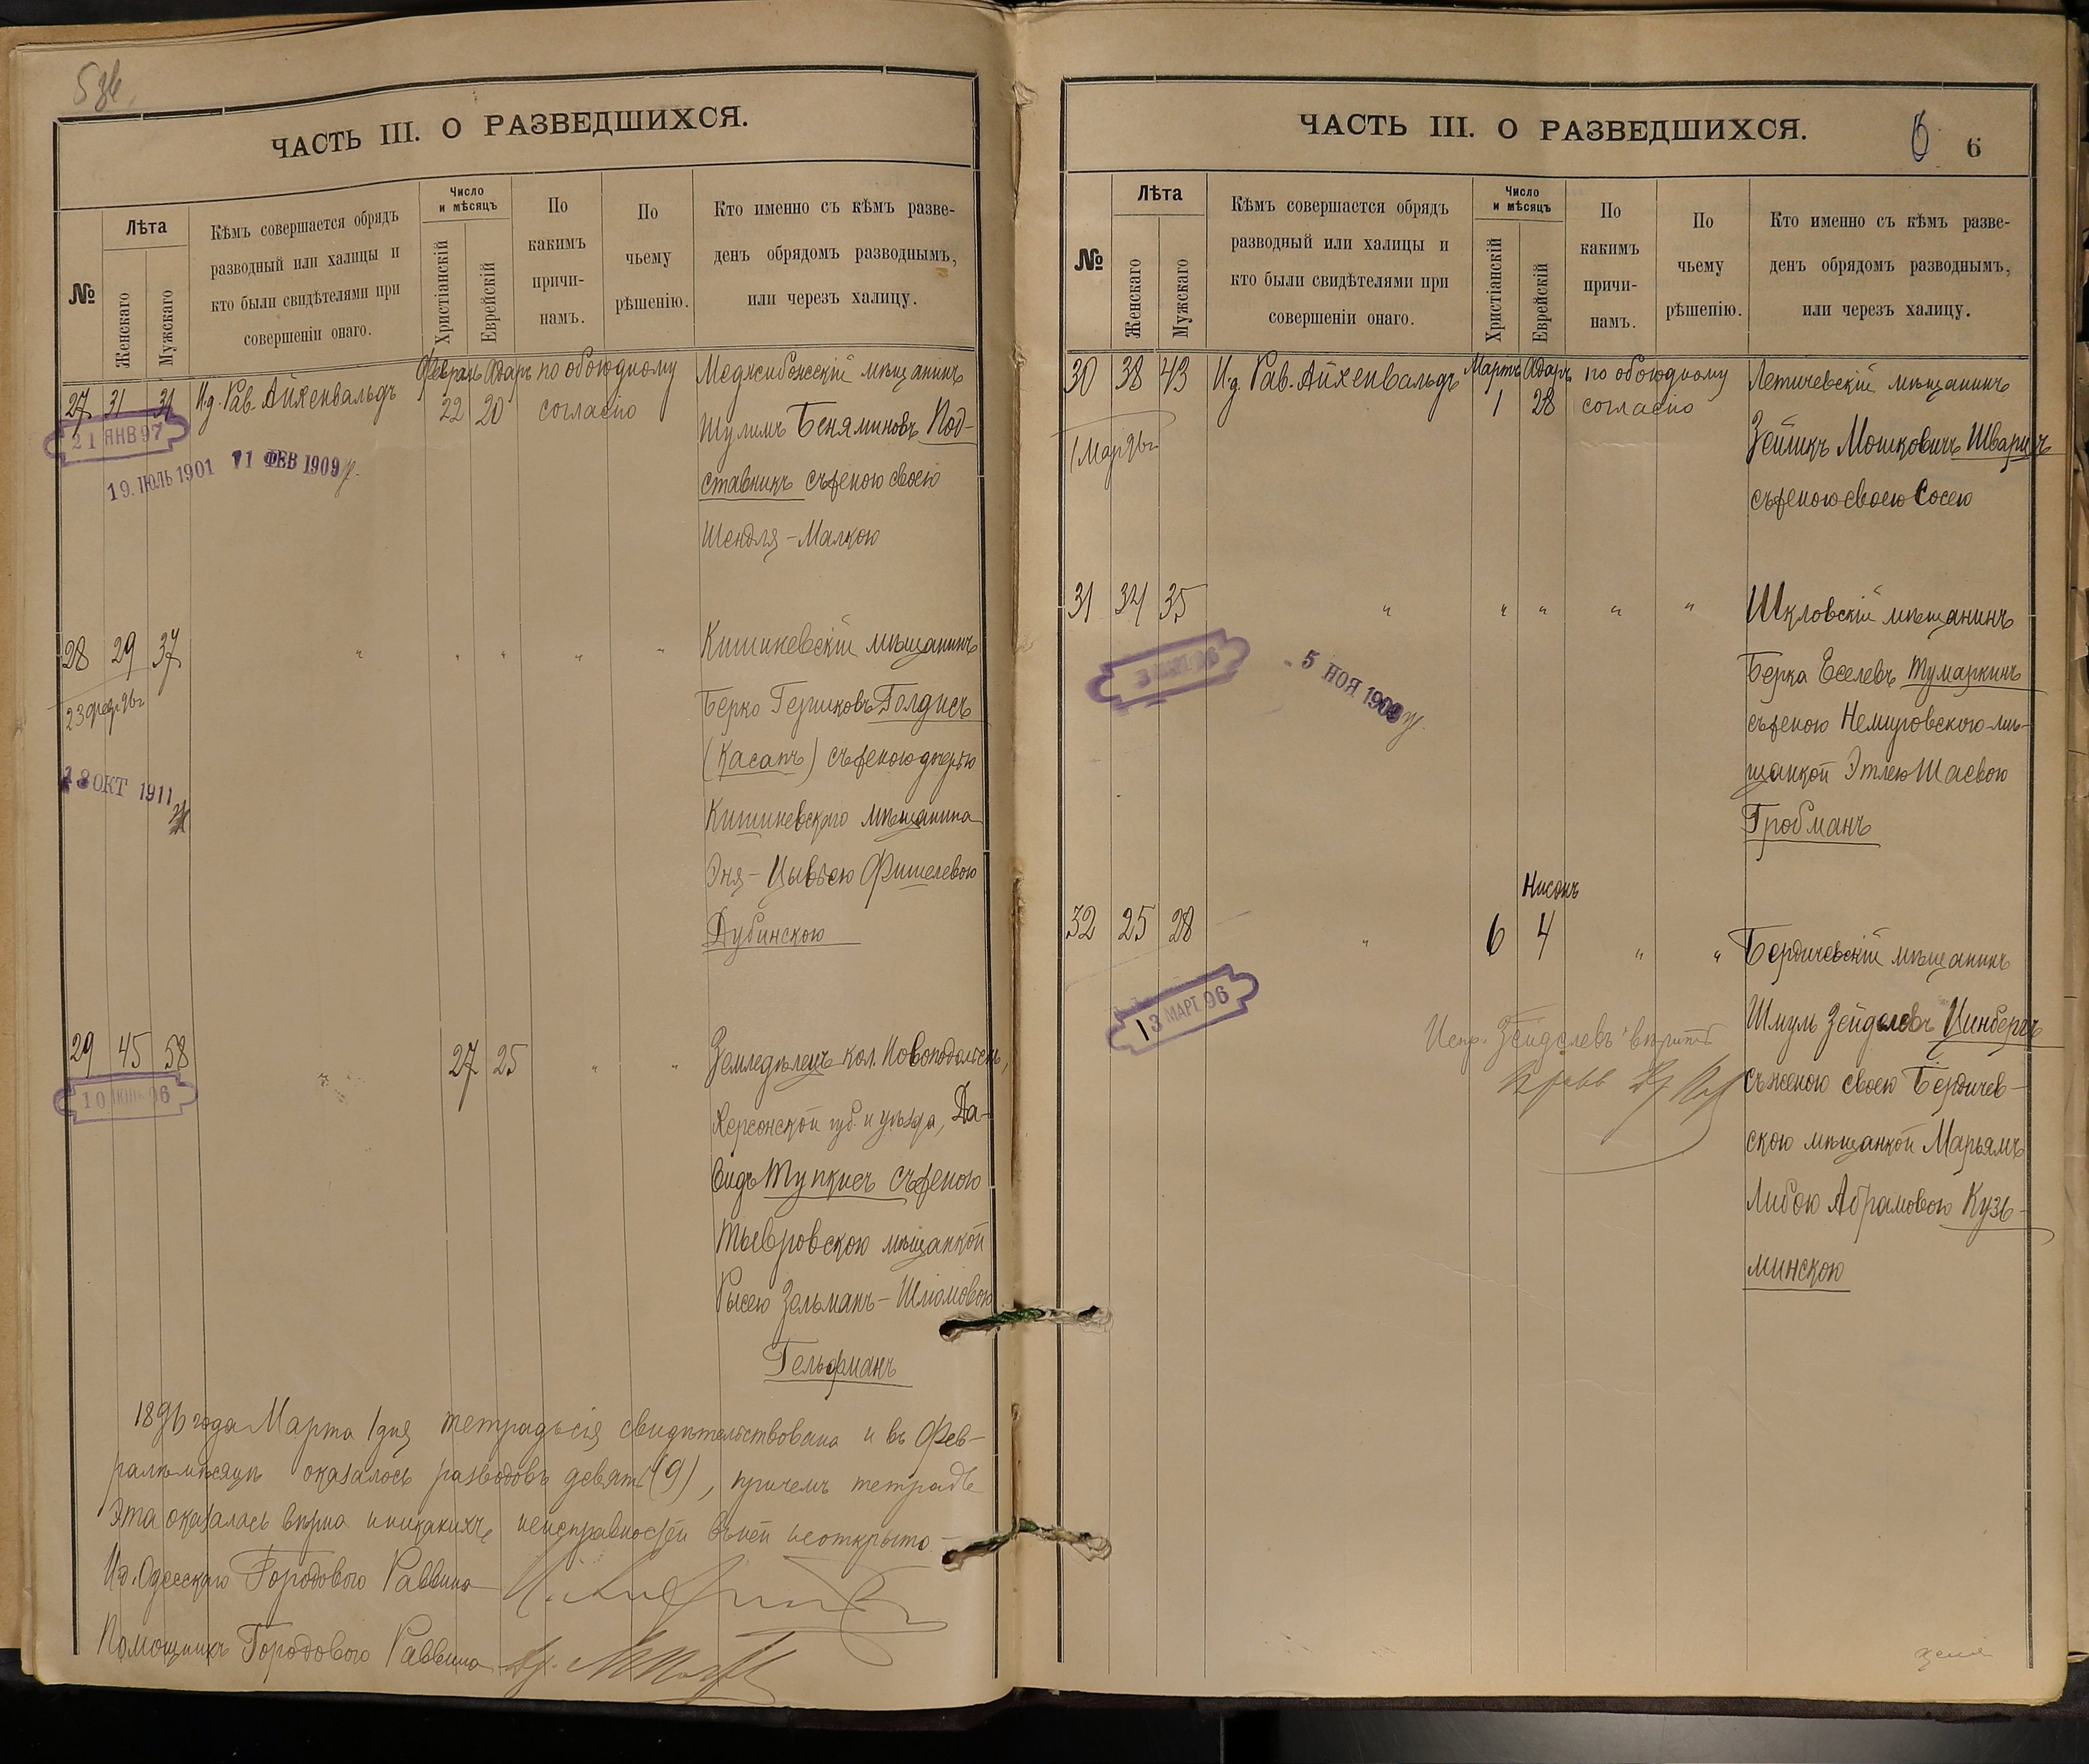 ЧАСТЬ III. О РАЗВЕДШИХСЯ.
№
Лѣта
Женскаго
Мужскаго
Кѣмъ совершается обрядъ
разводный или халицы и
кто были свидѣтелями при
совершеніи онаго.
Число
и мѣсяцъ
Христіанскій
Еврейскій
По
какимъ
причи-
намъ.
По
чьему
рѣшенію.
Кто именно съ кѣмъ разве-
денъ обрядомъ разводнымъ,
или черезъ халицу.
27 31 31 И.д. Рав. Айхенвальдъ
Февраль Адаръ
22 20
по обоюдному
согласію
Меджибожскій мѣщанинъ
Шулимъ Беняминовъ Под-
ставникъ съ женою своею
Шендля-Малкою
21 ЯНВ 97
19. ІЮЛЬ 1901 11 ФЕВ 1909
28 29 37 " " " " "
Кишиневскій мѣщанинъ
Берко Гершковъ Голдисъ
(Касапъ) съ женою дочерью
Кишиневскаго мѣщанина
Эня-Цывьею Фишелевою
Дубинскою
23 февр 96 г
ОКТ 1911
29 45 58 " 27 25 " "
Земледѣлецъ кол. Новоподольск,
Херсонской губ. и уѣзда, Да-
видъ Тупкисъ съ женою
Тывровскою мѣщанкой
Рысею Зельманъ-Шлюмовою
Гельфманъ
1896 года Марта 1 дня тетрадь сія свидѣтельствована и въ Фев-
ралѣ мѣсяцѣ оказалось разводовъ девять (9), причемъ тетрадь
эта оказалась вѣрна и никакихъ неисправностей въ ней не открыто
И.д. Одесскаго Городового Раввина
Помощникъ Городового Раввина
ЧАСТЬ III. О РАЗВЕДШИХСЯ.
6 6
№
Лѣта
Женскаго
Мужскаго
Кѣмъ совершается обрядъ
разводный или халицы и
кто были свидѣтелями при
совершеніи онаго.
Число
и мѣсяцъ
Христіанскій
Еврейскій
По
какимъ
причи-
намъ.
По
чьему
рѣшенію.
Кто именно съ кѣмъ разве-
денъ обрядомъ разводнымъ,
или черезъ халицу.
30 38 43 И.д. Рав. Айхенвальдъ
Мартъ Адаръ
1 28
по обоюдному
согласію
Летичевскій мѣщанинъ
Зейликъ Мошковичъ Шварцъ
съ женою своею Сосею
1 Мар 96 г
31 34 35 " " " " "
Шкловскій мѣщанинъ
Берка Еселевъ Тумаркинъ
съ женою Немировскою мѣ-
щанкой Этлею Шаевою
Гробманъ
5 НОЯ
Нисонъ
32 25 28 " 6 4 " "
Бердичевскій мѣщанинъ
Шмуль Зейделевъ Цинбергъ
съ женою своею Бердичев-
скою мѣщанкой Марьямъ
Либою Абрамовою Кузь-
минскою
13 МАРТ. 96
Испр. "Зейделевъ" вѣрить